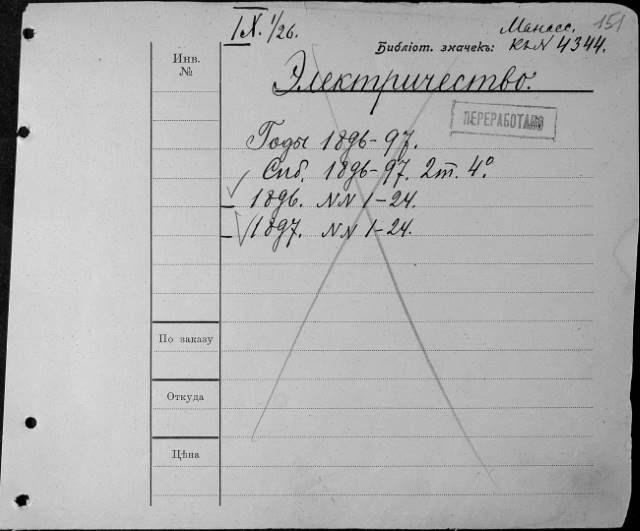 IX. 1/26.
Манасс. 151
Библіот. значекъ: къ N 4344.
Инв. №
Электричество.
ПЕРЕРАБОТАНО
Годы 1896-97.
Спб. 1896-97. 2 т. 4º.
1896. NN 1-24.
1897. NN 1-24.
По заказу
Откуда
Цѣна